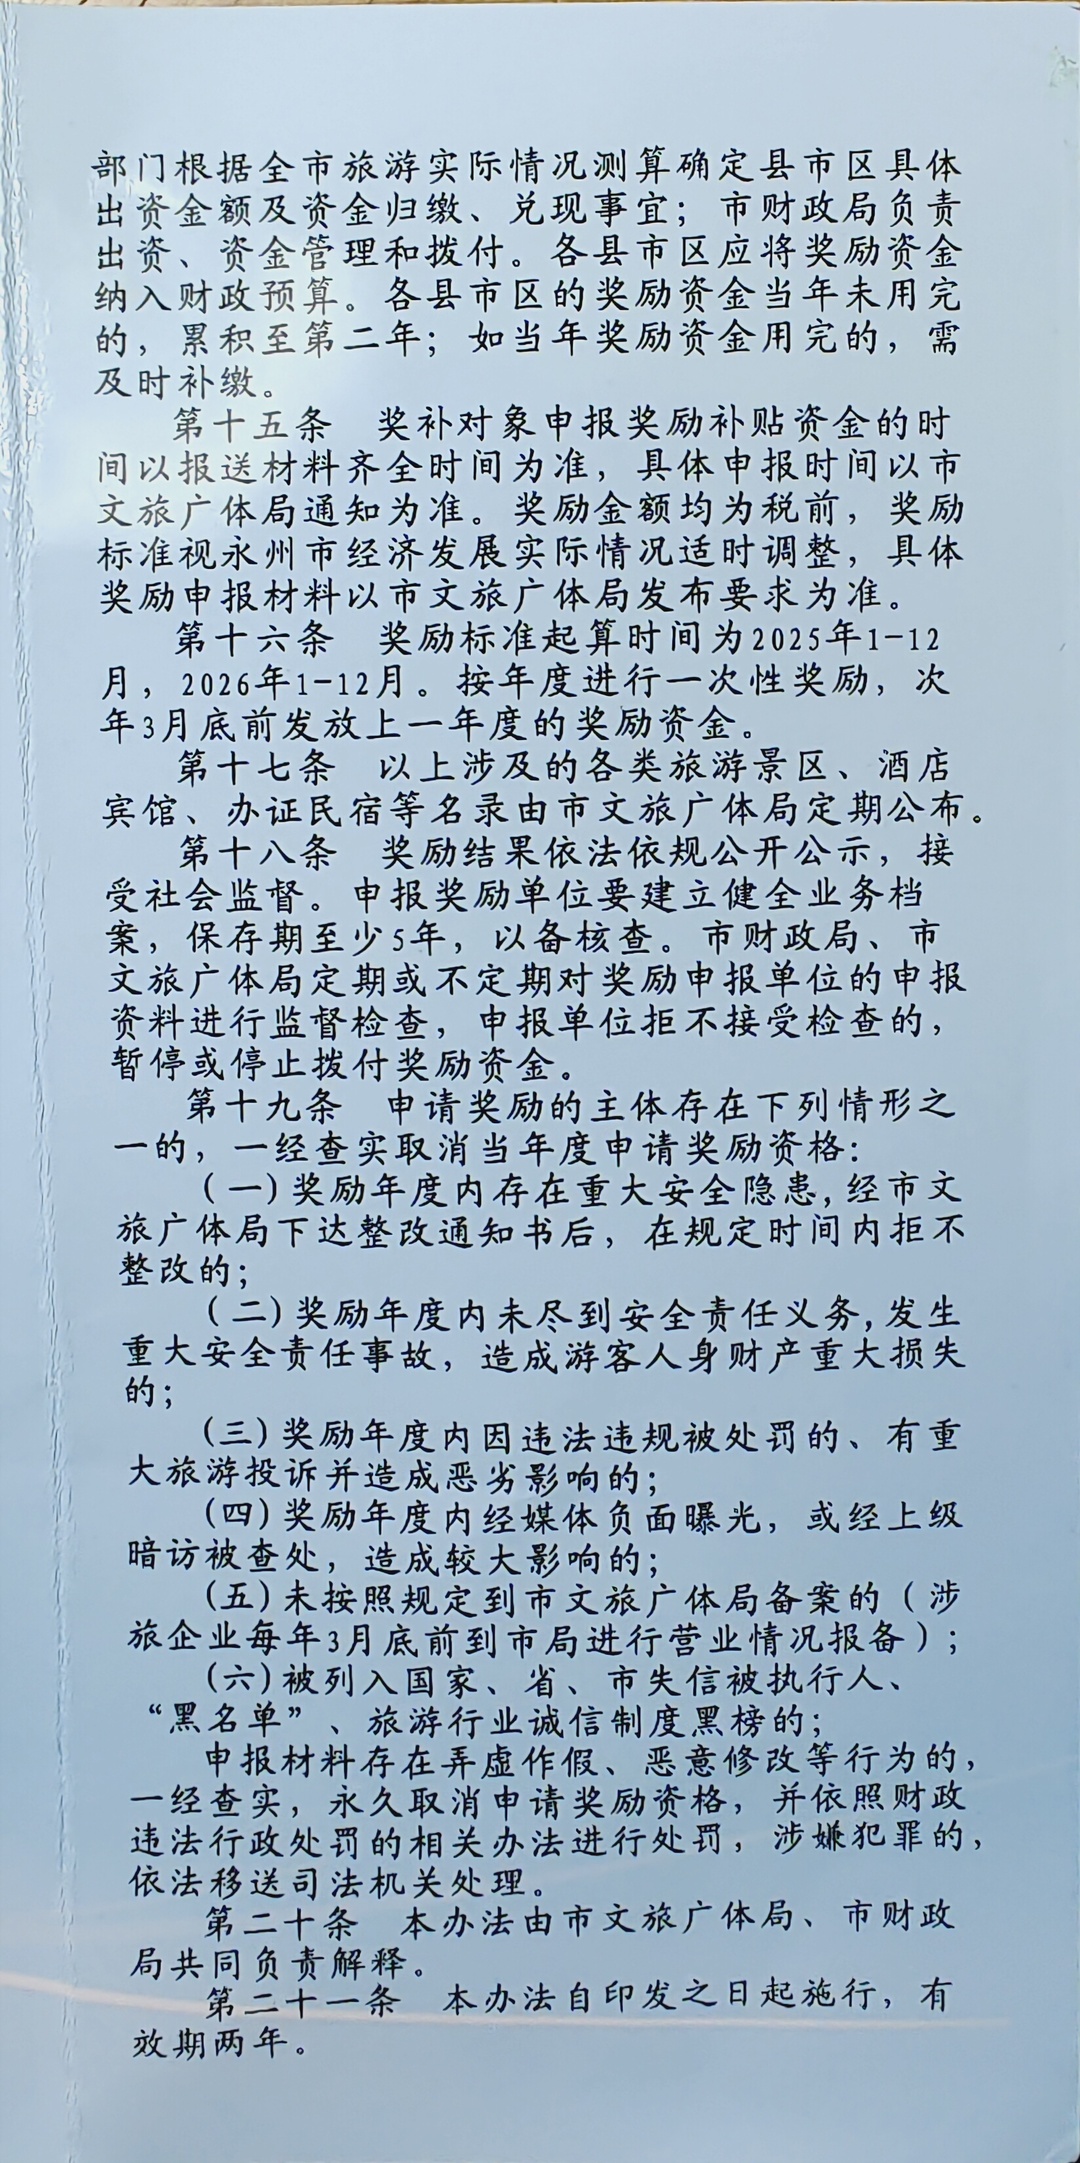 部门根据全市旅游实际情况测算确定县市区具体
出资金额及资金归缴、兑现事宜；市财政局负责
出资、资金管理和拨付。各县市区应将奖励资金
纳入财政预算。各县市区的奖励资金当年未用完
的，累积至第二年；如当年奖励资金用完的，需
及时补缴。
第十五条　奖补对象申报奖励补贴资金的时
间以报送材料齐全时间为准，具体申报时间以市
文旅广体局通知为准。奖励金额均为税前，奖励
标准视永州市经济发展实际情况适时调整，具体
奖励申报材料以市文旅广体局发布要求为准。
第十六条　奖励标准起算时间为2025年1-12
月，2026年1-12月。按年度进行一次性奖励，次
年3月底前发放上一年度的奖励资金。
第十七条　以上涉及的各类旅游景区、酒店
宾馆、办证民宿等名录由市文旅广体局定期公布。
第十八条　奖励结果依法依规公开公示，接
受社会监督。申报奖励单位要建立健全业务档
案，保存期至少5年，以备核查。市财政局、市
文旅广体局定期或不定期对奖励申报单位的申报
资料进行监督检查，申报单位拒不接受检查的，
暂停或停止拨付奖励资金。
第十九条　申请奖励的主体存在下列情形之
一的，一经查实取消当年度申请奖励资格：
（一）奖励年度内存在重大安全隐患，经市文
旅广体局下达整改通知书后，在规定时间内拒不
整改的；
（二）奖励年度内未尽到安全责任义务，发生
重大安全责任事故，造成游客人身财产重大损失
的；
（三）奖励年度内因违法违规被处罚的、有重
大旅游投诉并造成恶劣影响的；
（四）奖励年度内经媒体负面曝光，或经上级
暗访被查处，造成较大影响的；
（五）未按照规定到市文旅广体局备案的（涉
旅企业每年3月底前到市局进行营业情况报备）；
（六）被列入国家、省、市失信被执行人、
“黑名单”、旅游行业诚信制度黑榜的；
申报材料存在弄虚作假、恶意修改等行为的，
一经查实，永久取消申请奖励资格，并依照财政
违法行政处罚的相关办法进行处罚，涉嫌犯罪的，
依法移送司法机关处理。
第二十条　本办法由市文旅广体局、市财政
局共同负责解释。
第二十一条　本办法自印发之日起施行，有
效期两年。